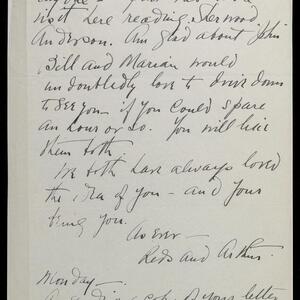 visit here reading Sherwood
Anderson. Am glad about John
Bill and Marian would
undoubtedly love to drive down
to see you – if you could spare
an hour or so. You will like
them both
We both have always loved
the idea of you – and your
being you.
As ever –
Reds and Arthur.
Monday –
your letter